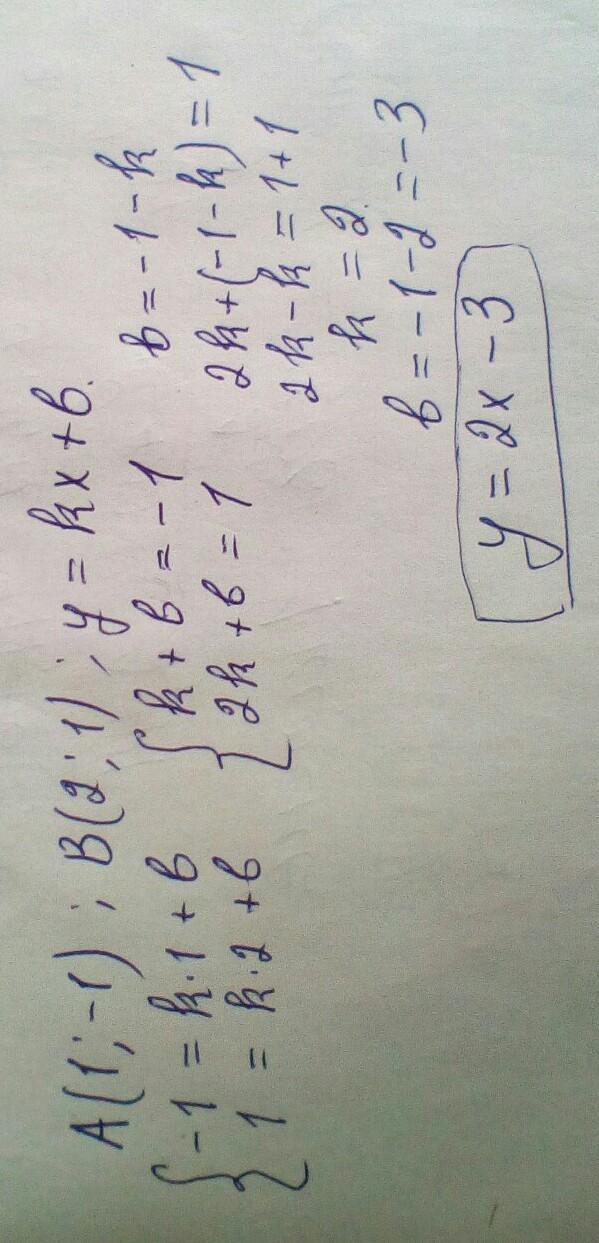 A(1; -1) ; B(2; 1) ; y = kx + b.
{ -1 = k·1 + b
1 = k·2 + b
{ k + b = -1
2k + b = 1
b = -1 - k
2k + (-1 - k) = 1
2k - k = 1 + 1
k = 2
b = -1 - 2 = -3
y = 2x - 3